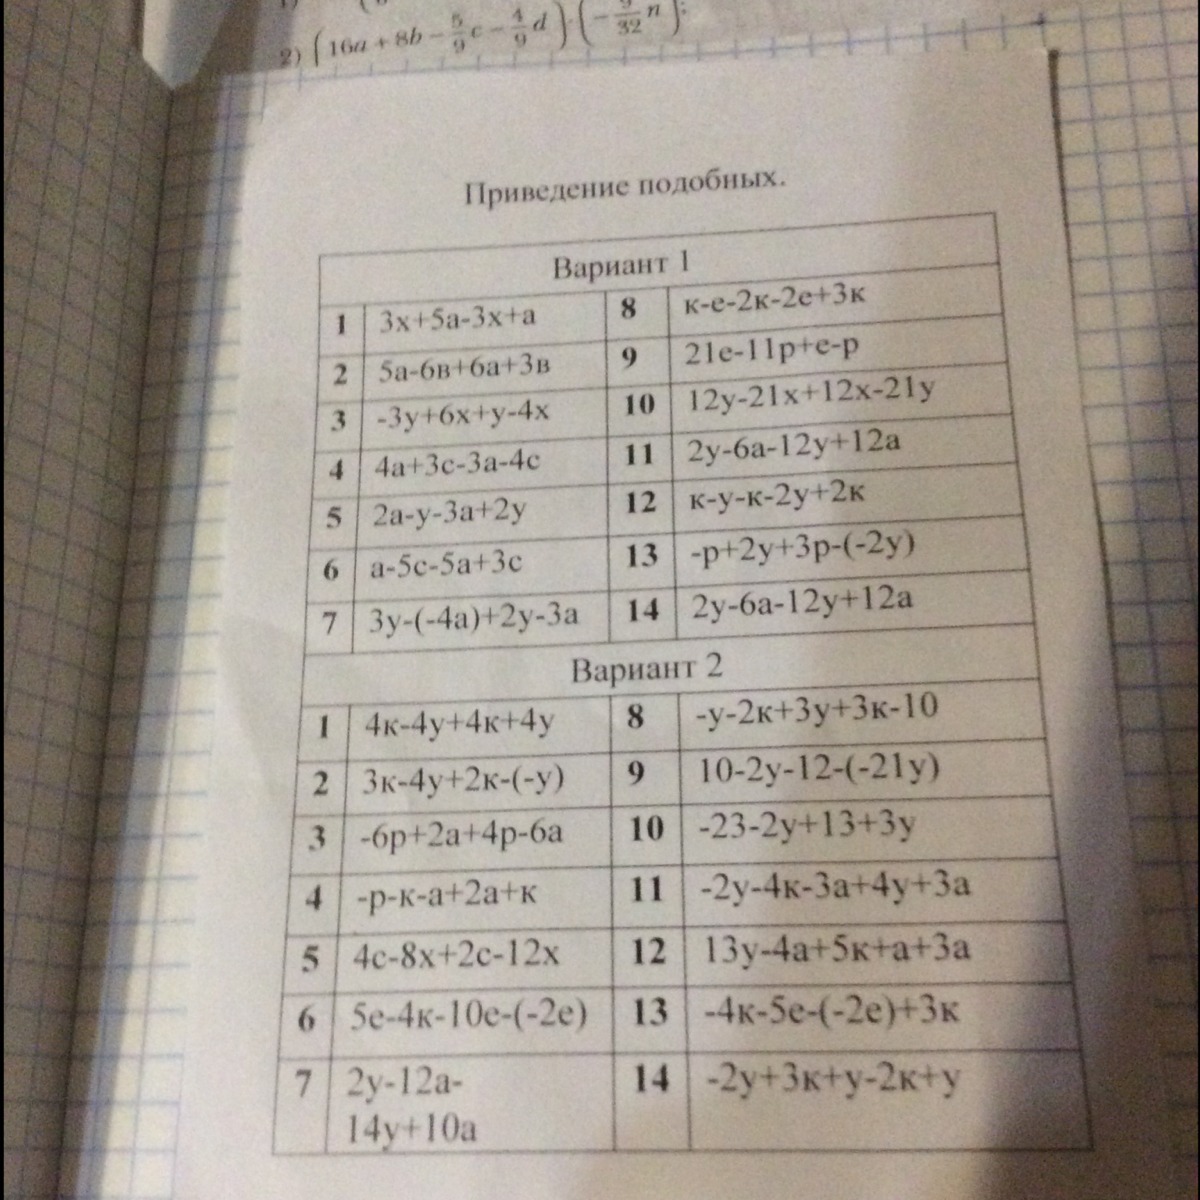 2) (16a + 8b − 5/9 c − 4/9 d) · (− 9/32 n);
Приведение подобных.
Вариант 1
1 3х+5а-3х+а 8 к-е-2к-2е+3к
2 5а-6в+6а+3в 9 21е-11р+е-р
3 -3у+6х+у-4х 10 12у-21х+12х-21у
4 4а+3с-3а-4с 11 2у-6а-12у+12а
5 2а-у-3а+2у 12 к-у-к-2у+2к
6 а-5с-5а+3с 13 -р+2у+3р-(-2у)
7 3у-(-4а)+2у-3а 14 2у-6а-12у+12а
Вариант 2
1 4к-4у+4к+4у 8 -у-2к+3у+3к-10
2 3к-4у+2к-(-у) 9 10-2у-12-(-21у)
3 -6р+2а+4р-6а 10 -23-2у+13+3у
4 -р-к-а+2а+к 11 -2у-4к-3а+4у+3а
5 4с-8х+2с-12х 12 13у-4а+5к+а+3а
6 5е-4к-10е-(-2е) 13 -4к-5е-(-2е)+3к
7 2у-12а- 14 -2у+3к+у-2к+у
14у+10а